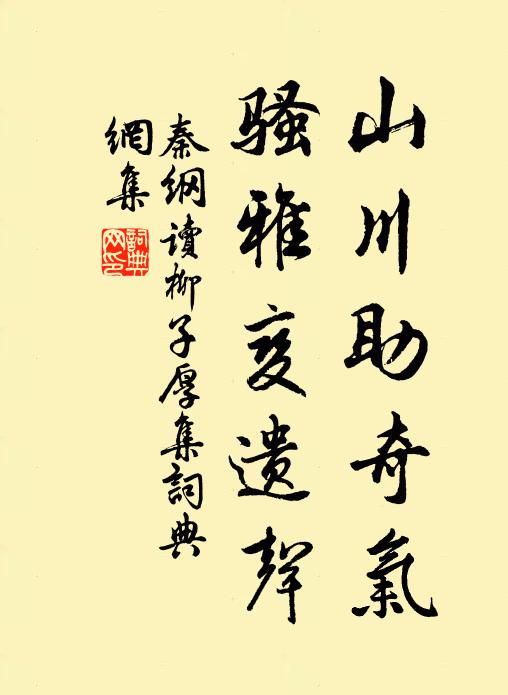 山川助奇氣
騷雅变遺聲
秦綱讀柳子厚集詞典
網集
詞典
网印